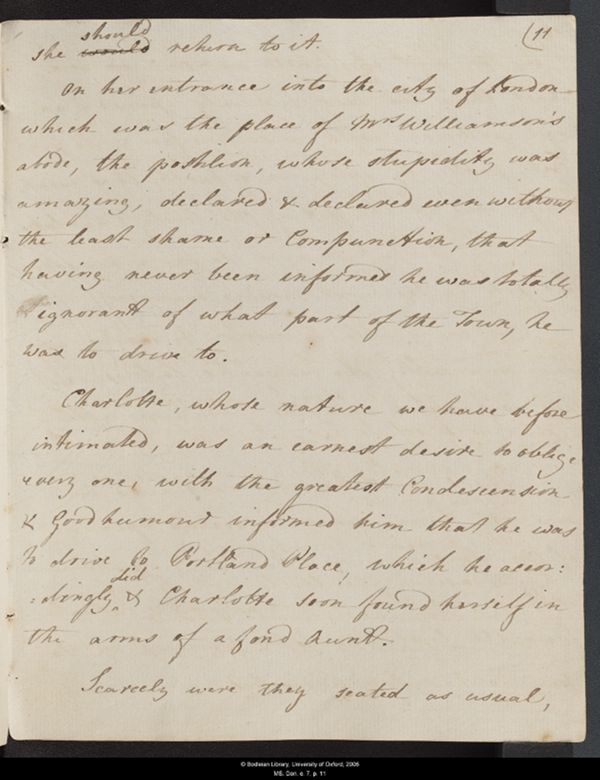 (11
should
she would return to it.
On her entrance into the city of London —
which was the place of Mrs Williamson's
abode, the postilion, whose stupidity was
amazing, declared & declared even without
the least shame or Compunction, that
having never been informed he was totally
ignorant of what part of the Town, he
was to drive to.
Charlotte, whose nature we have before
intimated, was an earnest desire to oblige
every one, with the greatest Condescension
& Good humour informed him that he was
to drive to Portland Place, which he accor:
did
:dingly ^ & Charlotte soon found herself in
the arms of a fond Aunt.
Scarcely were they seated as usual,
© Bodleian Library, University of Oxford, 2005
MS. Don. e. 7, p. 11